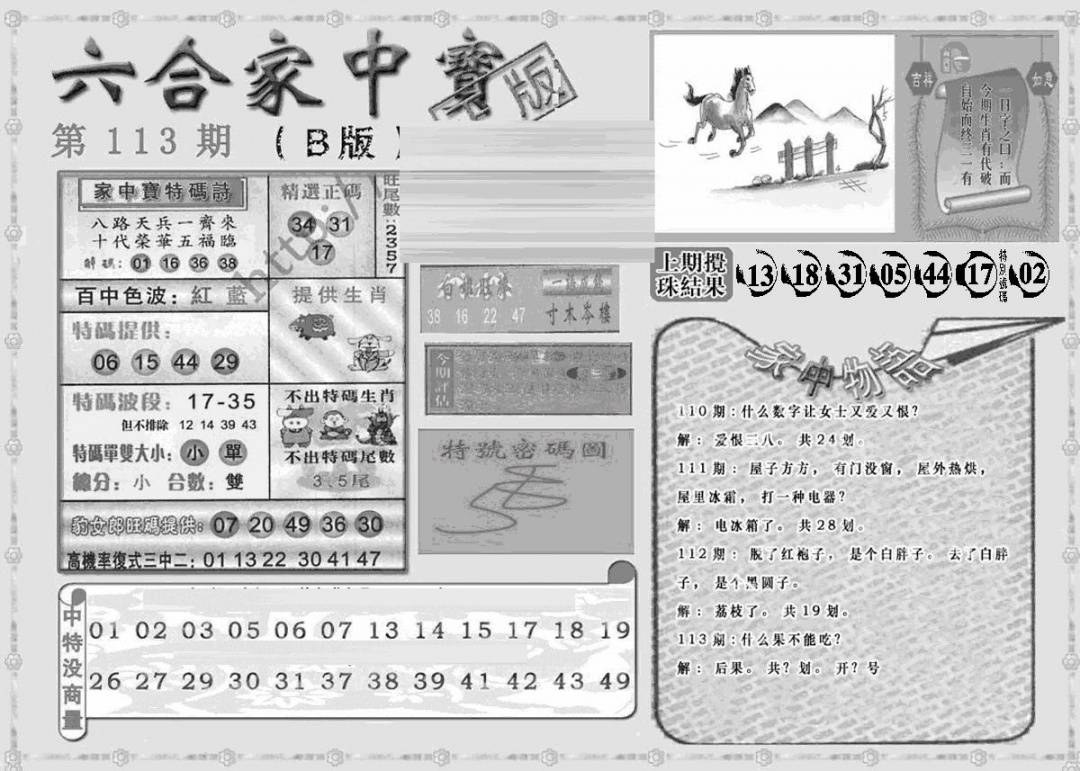 六合家中寶
版
第 113 期 (B版)
家中寶特碼詩
八路天兵一齊來
十代榮華五福臨
解碼: 01 16 36 38
精選正碼
34 31
17
旺尾數:2357
百中色波: 紅 藍
提供生肖
特碼提供:
06 15 44 29
特碼波段: 17-35
但不排除 12 14 39 43
特碼單雙大小: 小 單
總分: 小 合數: 雙
不出特碼生肖
不出特碼尾數
3.5尾
豹女郎旺碼提供: 07 20 49 36 30
高機率復式三中二: 01 13 22 30 41 47
38 16 22 47
寸木岑樓
今期評估
特號密碼圖
吉祥
如意
一日字之曰:而
今期生肖有代破
自始而终三一有
上期攪
珠結果
13 18 31 05 44 17
特別號碼
02
家中物語
110 期:什么数字让女士又爱又恨?
解: 爱恨三八。 共24 划。
111 期: 屋子方方, 有门没窗, 屋外热烘,
屋里冰霜, 打一种电器?
解: 电冰箱了。 共28 划。
112 期: 脱了红袍子, 是个白胖子。 去了白胖
子, 是个黑圆子。
解: 荔枝了。 共19 划。
113 期:什么果不能吃?
解: 后果。 共? 划。 开? 号
中特没商量
01 02 03 05 06 07 13 14 15 17 18 19
26 27 29 30 31 37 38 39 41 42 43 49
http://